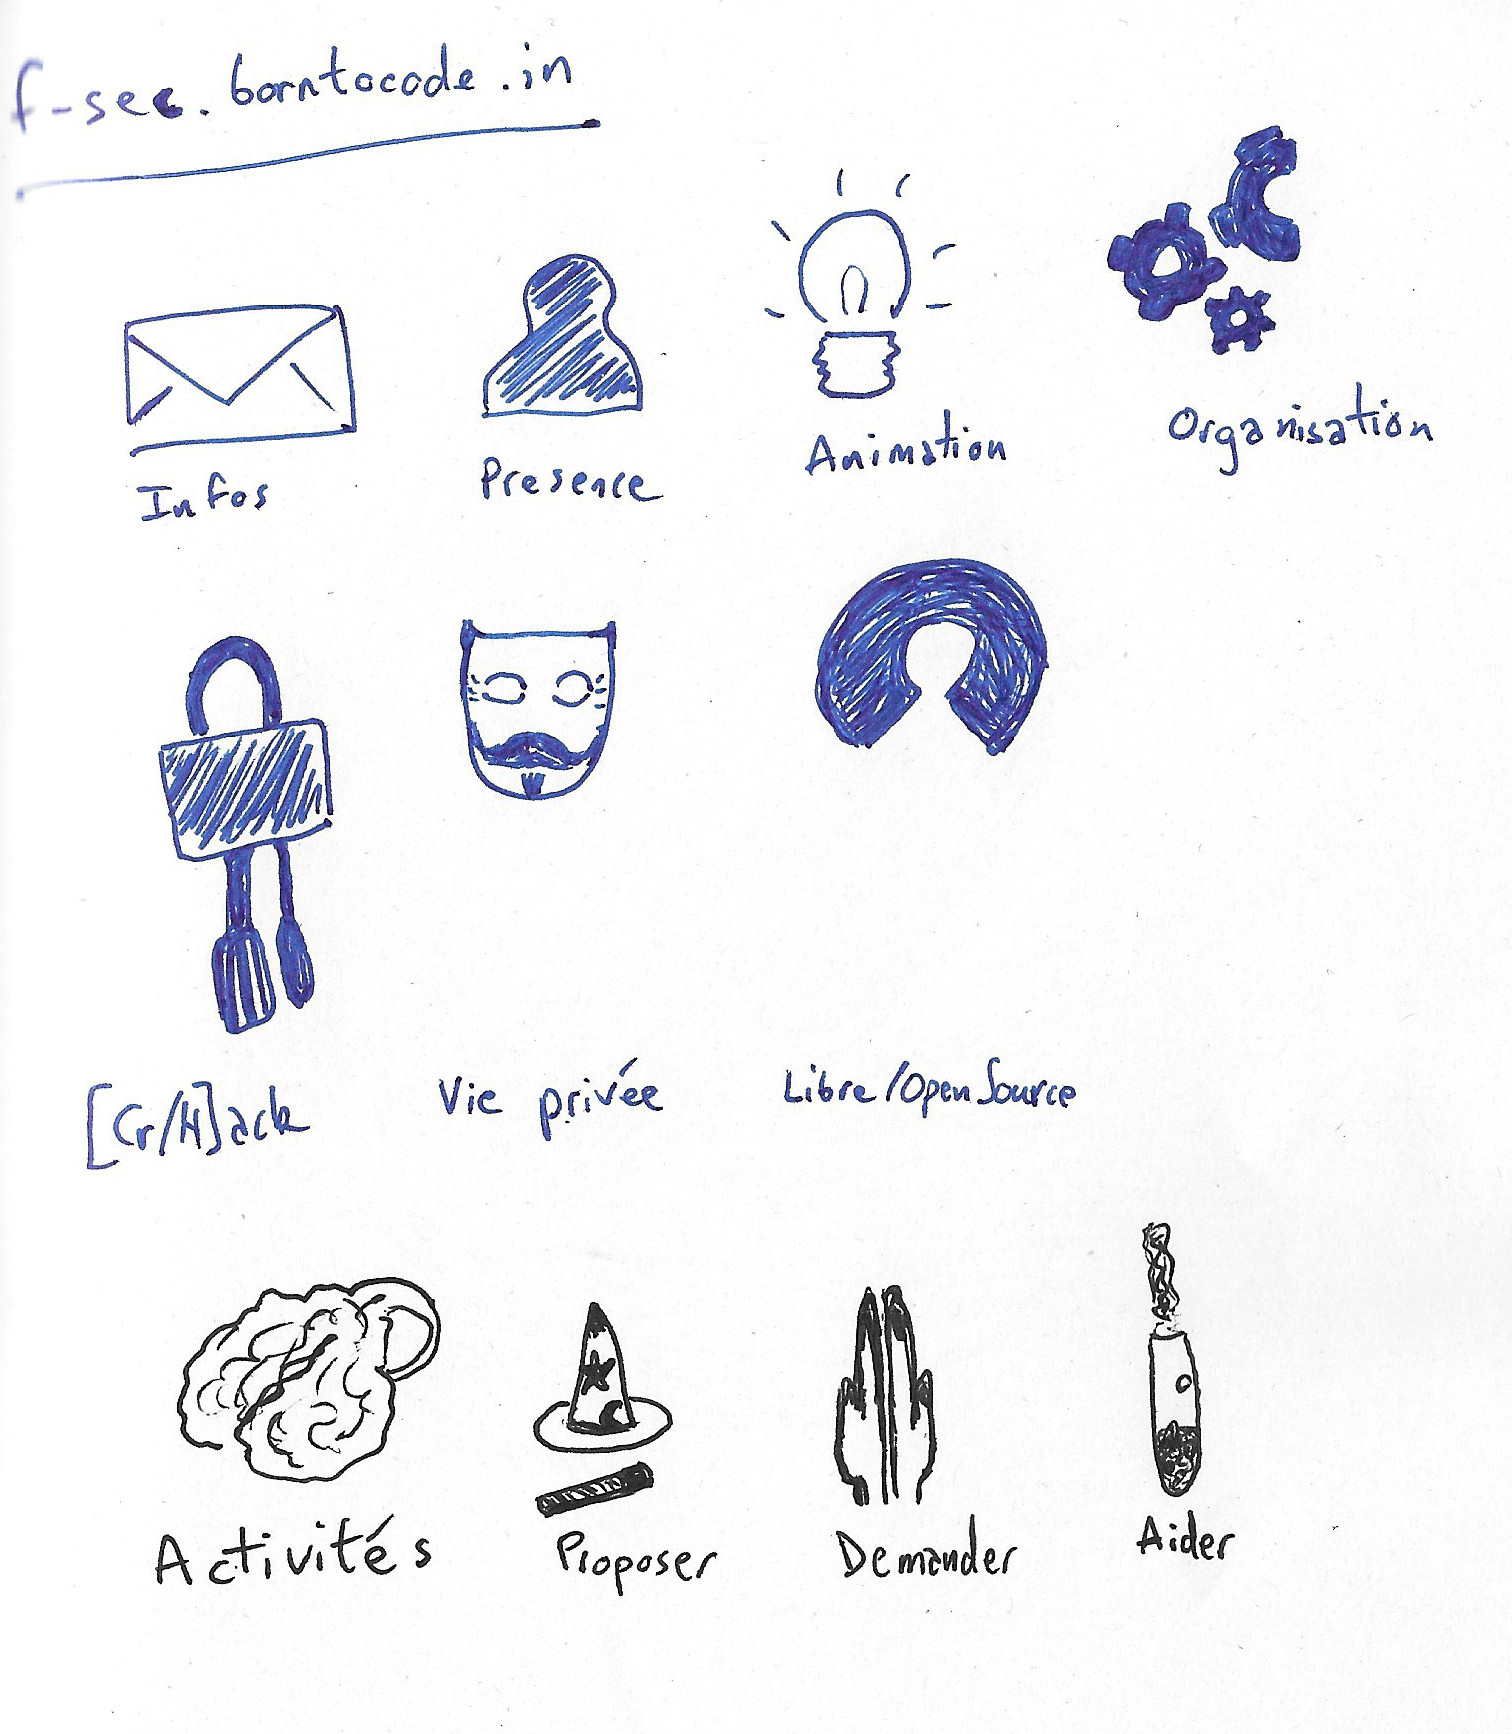 f-sec.borntocode.in
Infos
Presence
Animation
Organisation
[Cr/H]ack
Vie privée
Libre/OpenSource
Activités
Proposer
Demander
Aider